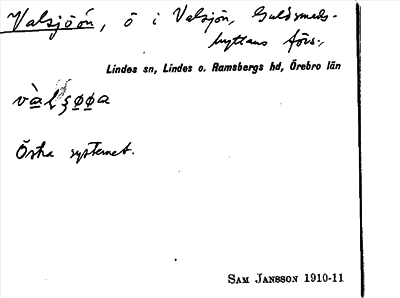 Valsjöön, ö i Valsjön, Guldsmeds-
hyttans förs.,
Lindes sn, Lindes o. Ramsbergs hd, Örebro län
Östra systemet.
SAM JANSSON 1910-11